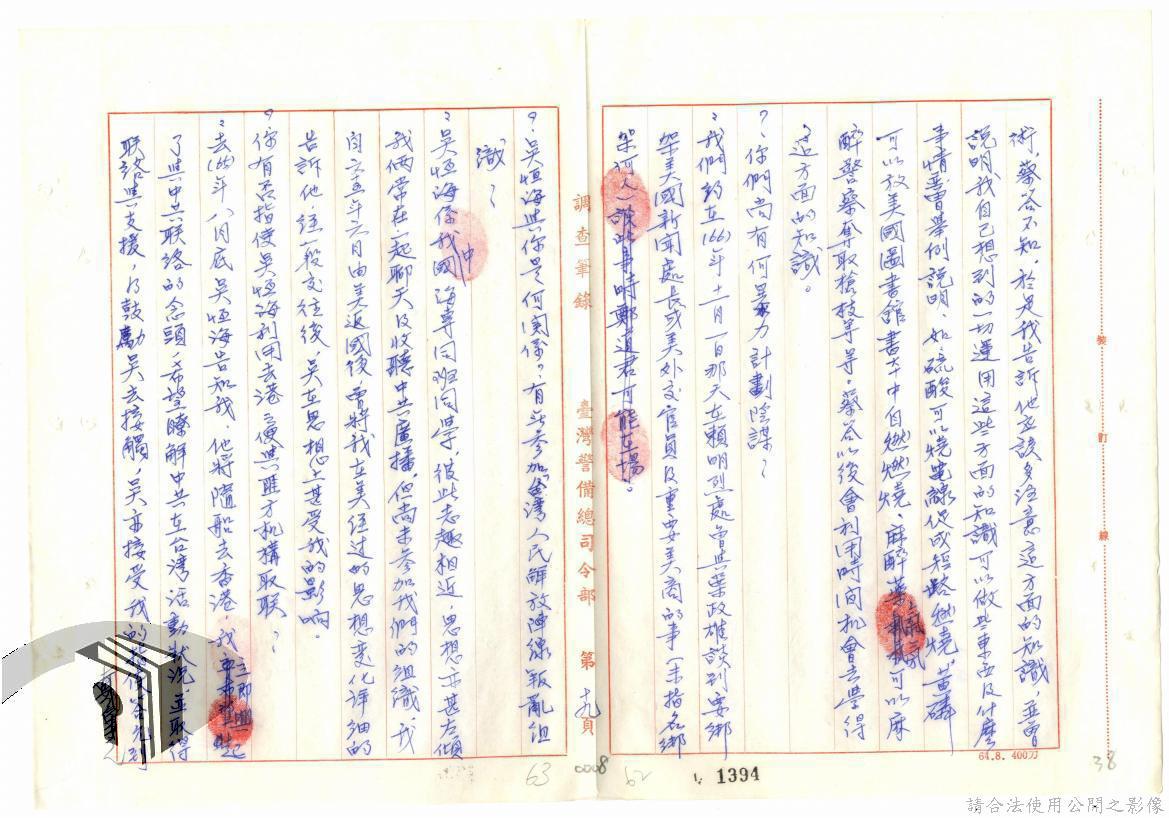 術，蔡答不知，於是我告訴他应該多注意這方面的知識，並曾
說明我自己想到的一切運用這些方面的知識可以做些東西及什麼
事情並曾舉例說明，如硫酸可以燒電線促成短路燃燒，黃磷
可以放美國圖書館書本中自燃燃燒，麻醉藥可以麻
醉警察奪取槍枝等等。蔡答以後會利用時間机會去學得
這方面的知識。
?、你們尚有何暴力計劃陰謀？
我們約在(66)年十一月一日那天在賴明烈處曾與葉政雄談到要綁
架美國新聞處長或美外交官員及重要美商的事（未指名綁
架何人）談此事時鄭道君可能在場。
調查筆錄 臺灣警備總司令部 第十九頁
?、吳恒海與你是何關係？有無參加「台灣人民解放陣線」叛亂組
識？
吳恒海係我中國海專同班同學，彼此志趣相近，思想亦甚左傾
我倆常在一起聊天及收聽中共廣播。但尚未參加我們的組識，我
自六五年六月由美返國後，曾將我在美經过的思想变化详細的
告訴他，經一段交往後，吳在思想上甚受我的影响。
?你有否指使吳恒海利用去港之便與匪方机構取联？
去(66)年八月底吳恒海告知我，他將隨船去香港，我立即
了與中共联絡的念頭，希望瞭解中共在台灣活動狀況，並取得
联絡與支援，乃鼓勵吳去接觸，吳亦接受我的
裝
訂
線
64.8. 400刀
38
63
0008
62
1394
請合法使用公開之影像